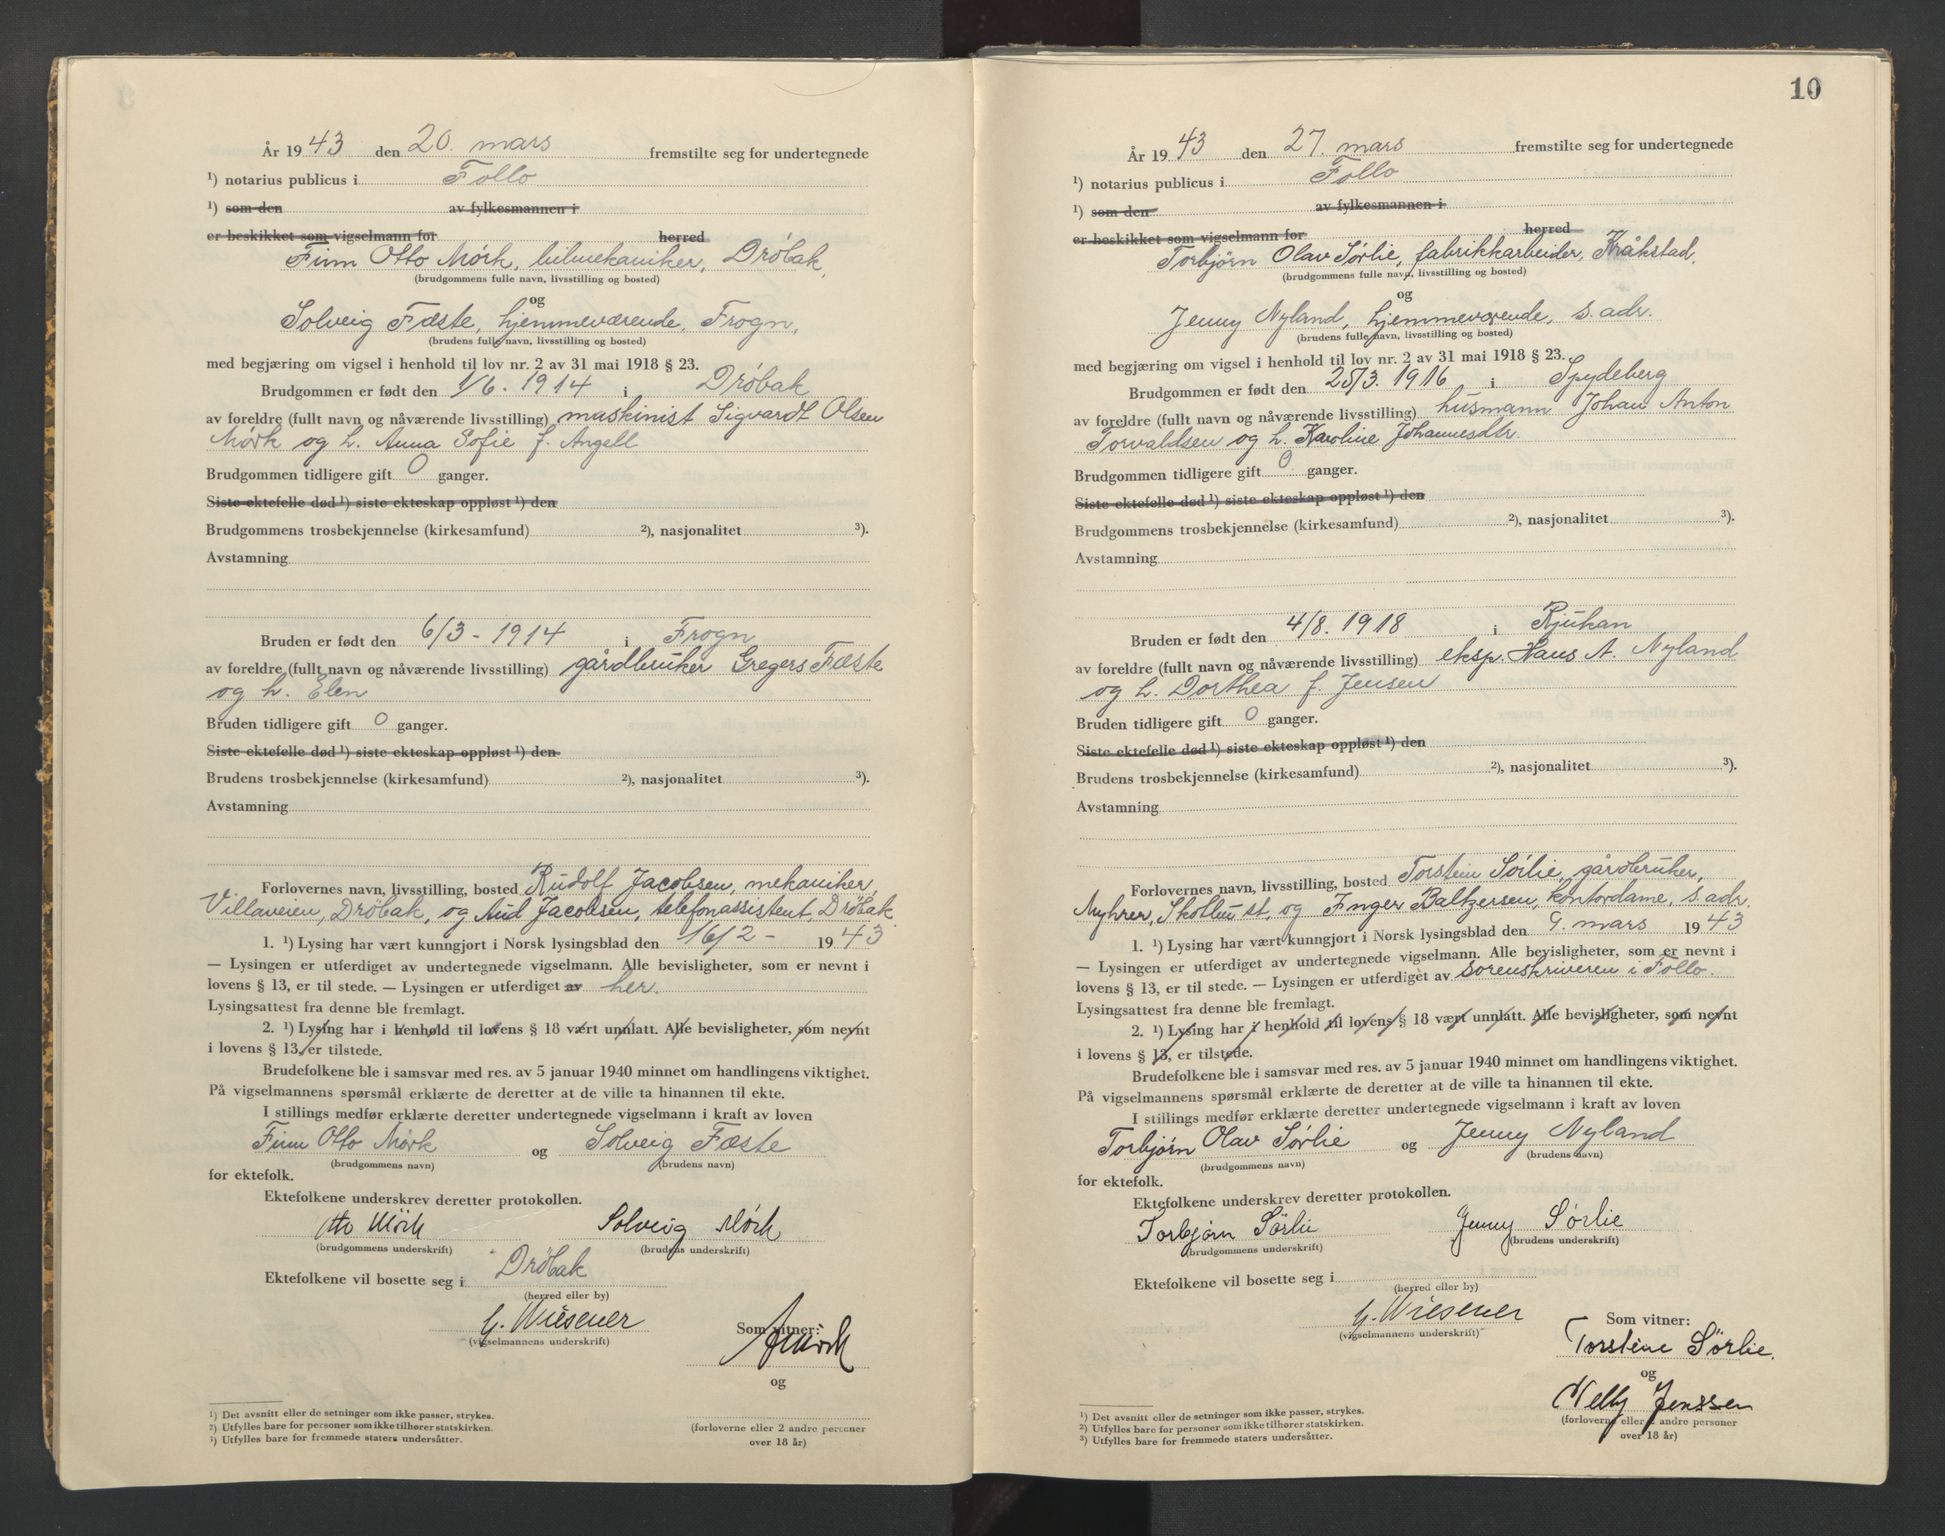 År 1943 den 20. mars fremstilte seg for undertegnede
¹) notarius publicus i Follo
¹) som den av fylkesmannen i
er beskikket som vigselmann for herred
Finn Otto Mørk, bilmekaniker, Drøbak,
(brudgommens fulle navn, livsstilling og bosted)
og
Solveig Fæste, hjemmeværende, Frogn,
(brudens fulle navn, livsstilling og bosted)
med begjæring om vigsel i henhold til lov nr. 2 av 31 mai 1918 § 23.
Brudgommen er født den 1/6. 1914 i Drøbak
av foreldre (fullt navn og nåværende livsstilling) maskinist Sigvardt Olsen
Mørk og h. Anna Sofie f. Angell
Brudgommen tidligere gift 0 ganger.
Siste ektefelle død ¹) siste ekteskap oppløst ¹) den
Brudgommens trosbekjennelse (kirkesamfund) ²), nasjonalitet ³).
Avstamning
Bruden er født den 6/3 - 1914 i Frogn
av foreldre (fullt navn og nåværende livsstilling) gårdbruker Gregers Fæste
og h. Elen
Bruden tidligere gift 0 ganger.
Siste ektefelle død ¹) siste ekteskap oppløst ¹) den
Brudens trosbekjennelse (kirkesamfund) ²), nasjonalitet ³).
Avstamning
Forlovernes navn, livsstilling, bosted Rudolf Jacobsen, mekaniker,
Villaveien, Drøbak, og Aud Jacobsen, telefonassistent, Drøbak
1. ¹) Lysing har vært kunngjort i Norsk lysingsblad den 16/2 - 1943
— Lysingen er utferdiget av undertegnede vigselmann. Alle bevisligheter, som er nevnt i
lovens § 13, er til stede. — Lysingen er utferdiget av her.
Lysingsattest fra denne ble fremlagt.
2. ¹) Lysing har i henhold til lovens § 18 vært unnlatt. Alle bevisligheter, som nevnt
i lovens § 13, er tilstede.
Brudefolkene ble i samsvar med res. av 5 januar 1940 minnet om handlingens viktighet.
På vigselmannens spørsmål erklærte de deretter at de ville ta hinannen til ekte.
I stillings medfør erklærte deretter undertegnede vigselmann i kraft av loven
Finn Otto Mørk og Solveig Fæste
(brudgommens navn) (brudens navn)
for ektefolk.
Ektefolkene underskrev deretter protokollen.
Otto Mörk Solveig Mörk
(brudgommens underskrift) (brudens underskrift)
Ektefolkene vil bosette seg i Drøbak
(herred eller by)
G. Wiesener Som vitner:
(vigselmannens underskrift)
og
¹) Det avsnitt eller de setninger som ikke passer, strykes.
²) Utfylles bare for personer som ikke tilhører statskirken.
³) Utfylles bare for fremmede staters undersåtter.
(forloverne eller 2 andre personer
over 18 år)
10
År 1943 den 27. mars fremstilte seg for undertegnede
¹) notarius publicus i Follo
¹) som den av fylkesmannen i
er beskikket som vigselmann for herred
Torbjørn Olav Sørlie, fabrikkarbeider, Kråkstad,
(brudgommens fulle navn, livsstilling og bosted)
og
Jenny Nyland, hjemmeværende, s. adr.
(brudens fulle navn, livsstilling og bosted)
med begjæring om vigsel i henhold til lov nr. 2 av 31 mai 1918 § 23.
Brudgommen er født den 25/3. 1916 i Spydeberg
av foreldre (fullt navn og nåværende livsstilling) husmann Johan Anton
Torvaldsen og h. Karoline Johannesdtr.
Brudgommen tidligere gift 0 ganger.
Siste ektefelle død ¹) siste ekteskap oppløst ¹) den
Brudgommens trosbekjennelse (kirkesamfund) ²), nasjonalitet ³).
Avstamning
Bruden er født den 4/8. 1918 i Rjukan
av foreldre (fullt navn og nåværende livsstilling) eksp. Hans A. Nyland
og h. Dorthea f. Jensen
Bruden tidligere gift 0 ganger.
Siste ektefelle død ¹) siste ekteskap oppløst ¹) den
Brudens trosbekjennelse (kirkesamfund) ²), nasjonalitet ³).
Avstamning
Forlovernes navn, livsstilling, bosted Torstein Sörlie, gårdbruker,
Myhrer, Skotbu st, og Inger Baltzersen, kontordame, s. adr.
1. ¹) Lysing har vært kunngjort i Norsk lysingsblad den 9. mars 1943
— Lysingen er utferdiget av undertegnede vigselmann. Alle bevisligheter, som er nevnt i
lovens § 13, er til stede. — Lysingen er utferdiget av sorenskriveren i Follo.
Lysingsattest fra denne ble fremlagt.
2. ¹) Lysing har i henhold til lovens § 18 vært unnlatt. Alle bevisligheter, som nevnt
i lovens § 13, er tilstede.
Brudefolkene ble i samsvar med res. av 5 januar 1940 minnet om handlingens viktighet.
På vigselmannens spørsmål erklærte de deretter at de ville ta hinannen til ekte.
I stillings medfør erklærte deretter undertegnede vigselmann i kraft av loven
Torbjørn Olav Sørlie og Jenny Nyland
(brudgommens navn) (brudens navn)
for ektefolk.
Ektefolkene underskrev deretter protokollen.
Torbjørn Sörlie Jenny Sörlie
(brudgommens underskrift) (brudens underskrift)
Ektefolkene vil bosette seg i
(herred eller by)
G. Wiesener Som vitner:
(vigselmannens underskrift)
Torsteine Sörlie.
og
Nelly Jenssen
¹) Det avsnitt eller de setninger som ikke passer, strykes.
²) Utfylles bare for personer som ikke tilhører statskirken.
³) Utfylles bare for fremmede staters undersåtter.
(forloverne eller 2 andre personer
over 18 år)